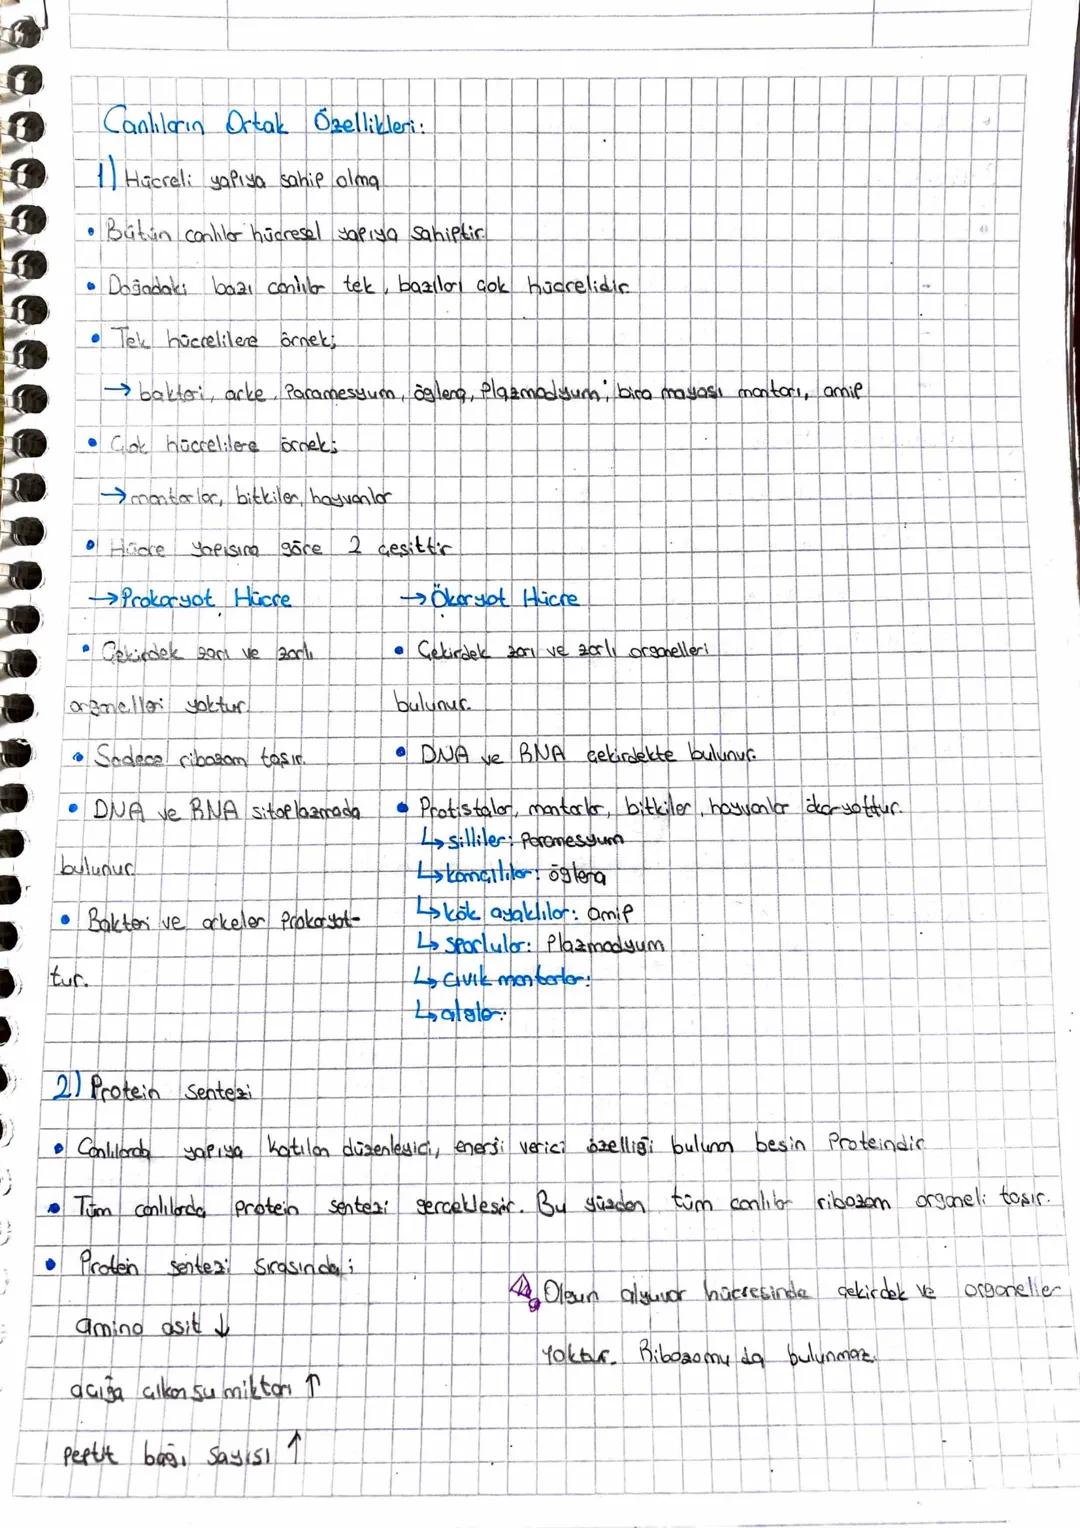 Canlıların Ortak Özellikleri:
1) Hücreli yapıya sahip olma
• Bütün canlılar hücresel yapıya sahiptir.
• Doğadaki bazı canlılar tek, bazıları çok hücrelidir.
• Tek hücrelilere örnek;
→ bakteri, arke, Paramesyum, öglena, Plazmodyum, bira mayası mantarı, amip
• Çok hücrelilere örnek;
→ mantarlar, bitkiler, hayvanlar
• Hücre yapısına göre 2 çeşittir
→ Prokaryot Hücre
• Çekirdek zarı ve zarlı
organelleri yoktur.
• Sadece ribozom taşır.
• DNA ve RNA sitoplazmada
bulunur.
• Bakteri ve arkeler Prokaryot-
tur.
→ Ökaryot Hücre
• Çekirdek zarı ve zarlı organelleri
bulunur.
• DNA ve RNA çekirdekte bulunur.
• Protistalar, mantarlar, bitkiler, hayvanlar ökaryottur.
↳ silliler: Paramesyum
↳ kamçılılar: öglena
↳ kök ayaklılar: amip
↳ sporlular: Plazmodyum
↳ cıvık mantarlar:
↳ algler:
2) Protein Sentezi
• Canlılarda yapıya katılan düzenleyici, enerji verici özelliği bulunan besin Proteindir.
• Tüm canlılarda protein sentezi gerçekleşir. Bu yüzden tüm canlılar ribozom organeli taşır.
• Protein sentezi sırasında;
amino asit ↓
açığa çıkan su miktarı ↑
peptit bağı sayısı ↑
Olgun alyuvar hücresinde çekirdek ve organeller
yoktur. Ribozomu da bulunmaz.